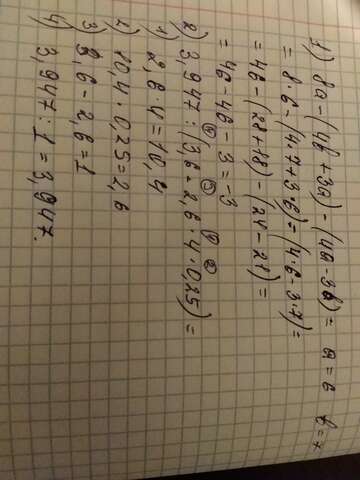 1) 8a - (4b + 3a) - (4a - 3b) = a = 6 b = 7
= 8·6 - (4·7 + 3·6) - (4·6 - 3·7) =
= 48 - (28 + 18) - (24 - 21) =
= 48 - 46 - 3 = -3
2) 3,947 : (3,6 - 2,6 · 4 · 0,25) =
1) 2,6 · 4 = 10,4
2) 10,4 · 0,25 = 2,6
3) 3,6 - 2,6 = 1
4) 3,947 : 1 = 3,947.